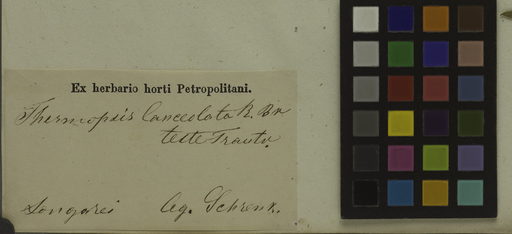 Ex herbario horti Petropolitani.
Thermopsis lanceolata R. Br
teste Trautv.
Songarei leg. Schrenk.